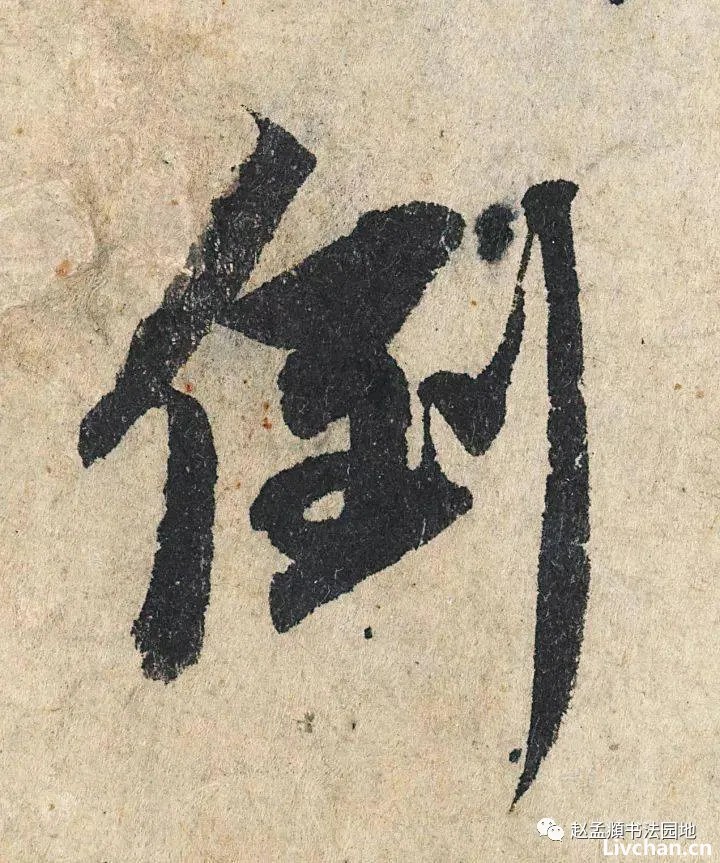 倒
赵孟頫书法园地
Livchan.cn